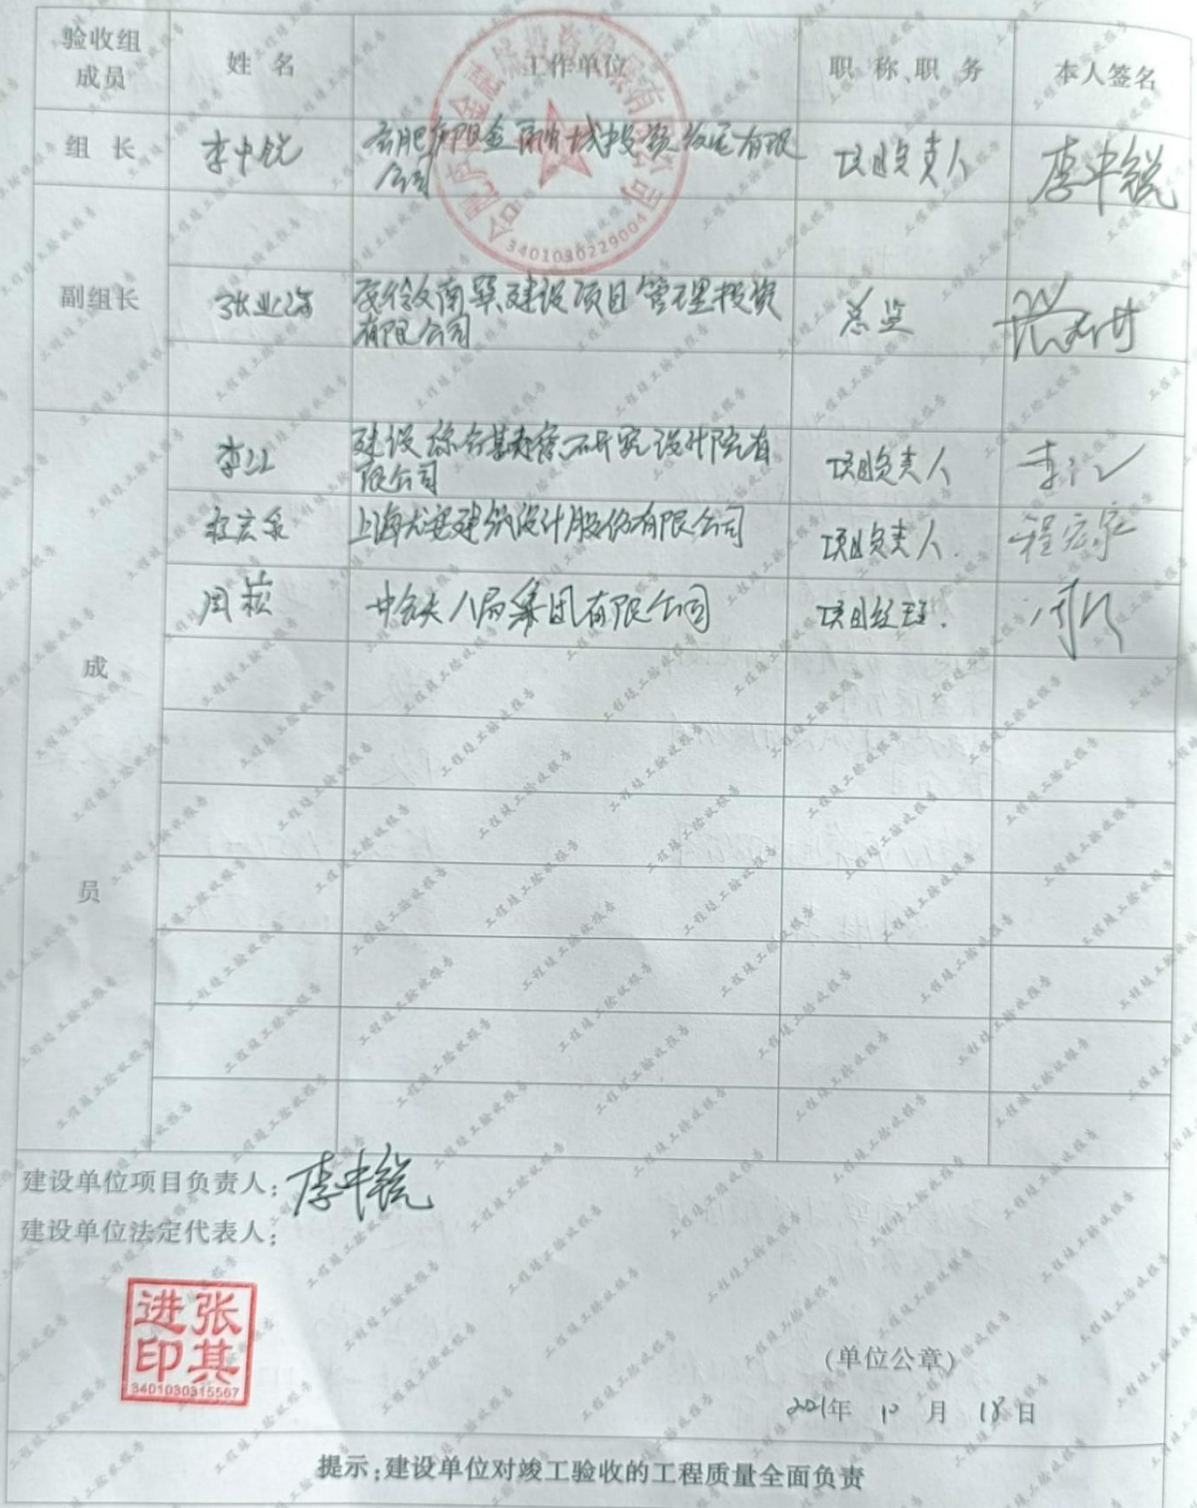 验收组
成员
姓 名
工作单位
职 称、职 务
本人签名
组 长
李中锐
合肥庐阳金融城投资发展有限
公司
项目负责人
李中锐
副组长
建设项目管理投资
有限公司
总监
李江
建设综合勘察研究设计院有
限公司
项目负责人
李江
上海尤安建筑设计股份有限公司
项目负责人.
程宏
周菘
中铁八局集团有限公司
项目经理.
成
员
建设单位项目负责人:李中锐
建设单位法定代表人:
张其
进印
3401030315567
3401030229004
(单位公章)
2021年 10 月 18 日
提示:建设单位对竣工验收的工程质量全面负责
工程竣工验收报告